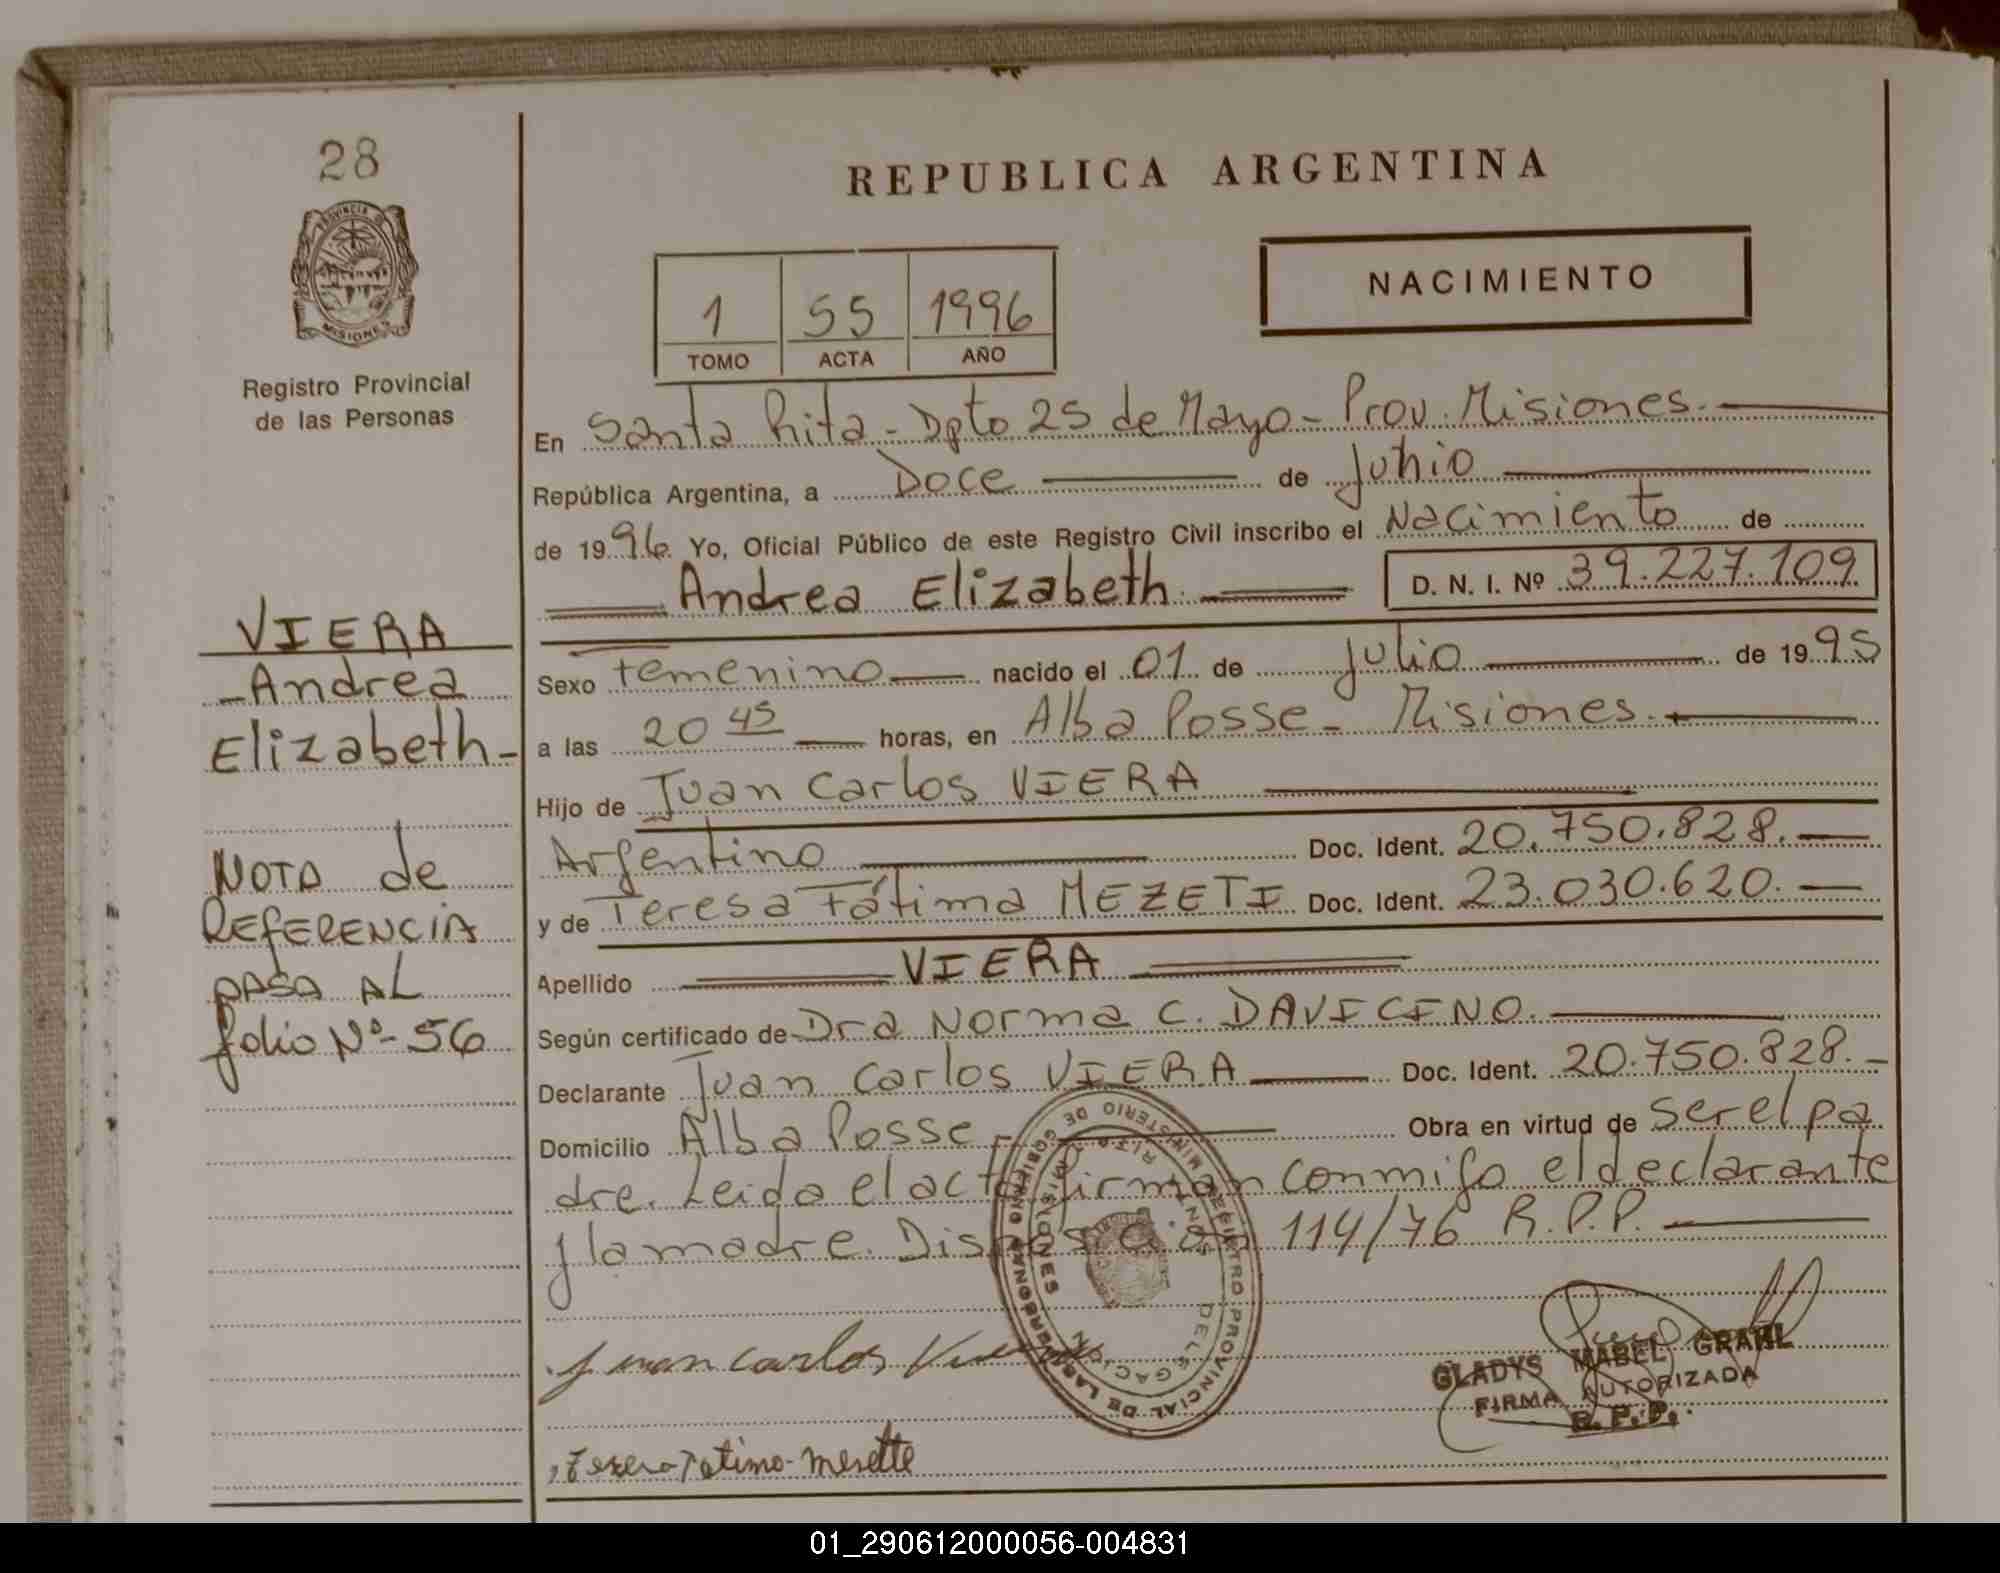 28
PROVINCIA DE
MISIONES
Registro Provincial
de las Personas
VIERA
-Andrea
Elizabeth-
NOTA de
REFERENCIA
PASA AL
folio Nº- 56
REPUBLICA ARGENTINA
NACIMIENTO
1 55 1996
TOMO ACTA AÑO
En Santa Rita - Dpto 25 de Mayo - Prov. Misiones.
República Argentina, a Doce de Junio
de 1996 Yo, Oficial Público de este Registro Civil inscribo el Nacimiento de
Andrea Elizabeth. D. N. I. Nº 39.227.109
Sexo Femenino nacido el 01 de Julio de 1995
a las 20 45 horas, en Alba Posse - Misiones.
Hijo de Juan Carlos VIERA
Argentino Doc. Ident. 20.750.828.
y de Teresa Fátima MEZETI Doc. Ident. 23.030.620.
Apellido VIERA
Según certificado de Dra Norma C. DAVICINO.
Declarante Juan Carlos VIERA Doc. Ident. 20.750.828.
Domicilio Alba Posse - Obra en virtud de ser el pa
dre. Leida el acta firman conmigo el declarante
y la madre. Disposición 114/76 R.P.P.
MINISTERIO DE GOBIERNO REGISTRO PROVINCIAL DE LAS PERSONAS
DELEGACION RITA MISIONES
Juan Carlos Viera
GLADYS MABEL GRAHL
FIRMA AUTORIZADA
R. P. P.
Fatima Mesette
01_290612000056-004831